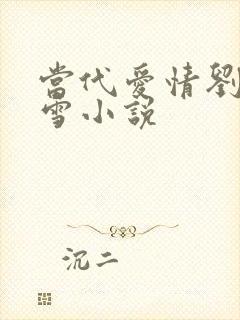 當代愛情劉
雪小説
沉二